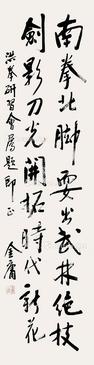 南拳北脚耍出武林絶技
劍影刀光開拓時代新花
洪拳研習會屬題即正
金庸